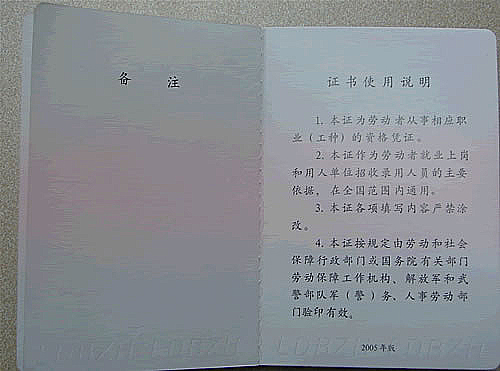 备 注
证书使用说明
1. 本证为劳动者从事相应职
业（工种）的资格凭证。
2. 本证作为劳动者就业上岗
和用人单位招收录用人员的主要
依据，在全国范围内通用。
3. 本证各项填写内容严禁涂
改。
4. 本证按规定由劳动和社会
保障行政部门或国务院有关部门
劳动保障工作机构、解放军和武
警部队军（警）务、人事劳动部
门验印有效。
2005年版